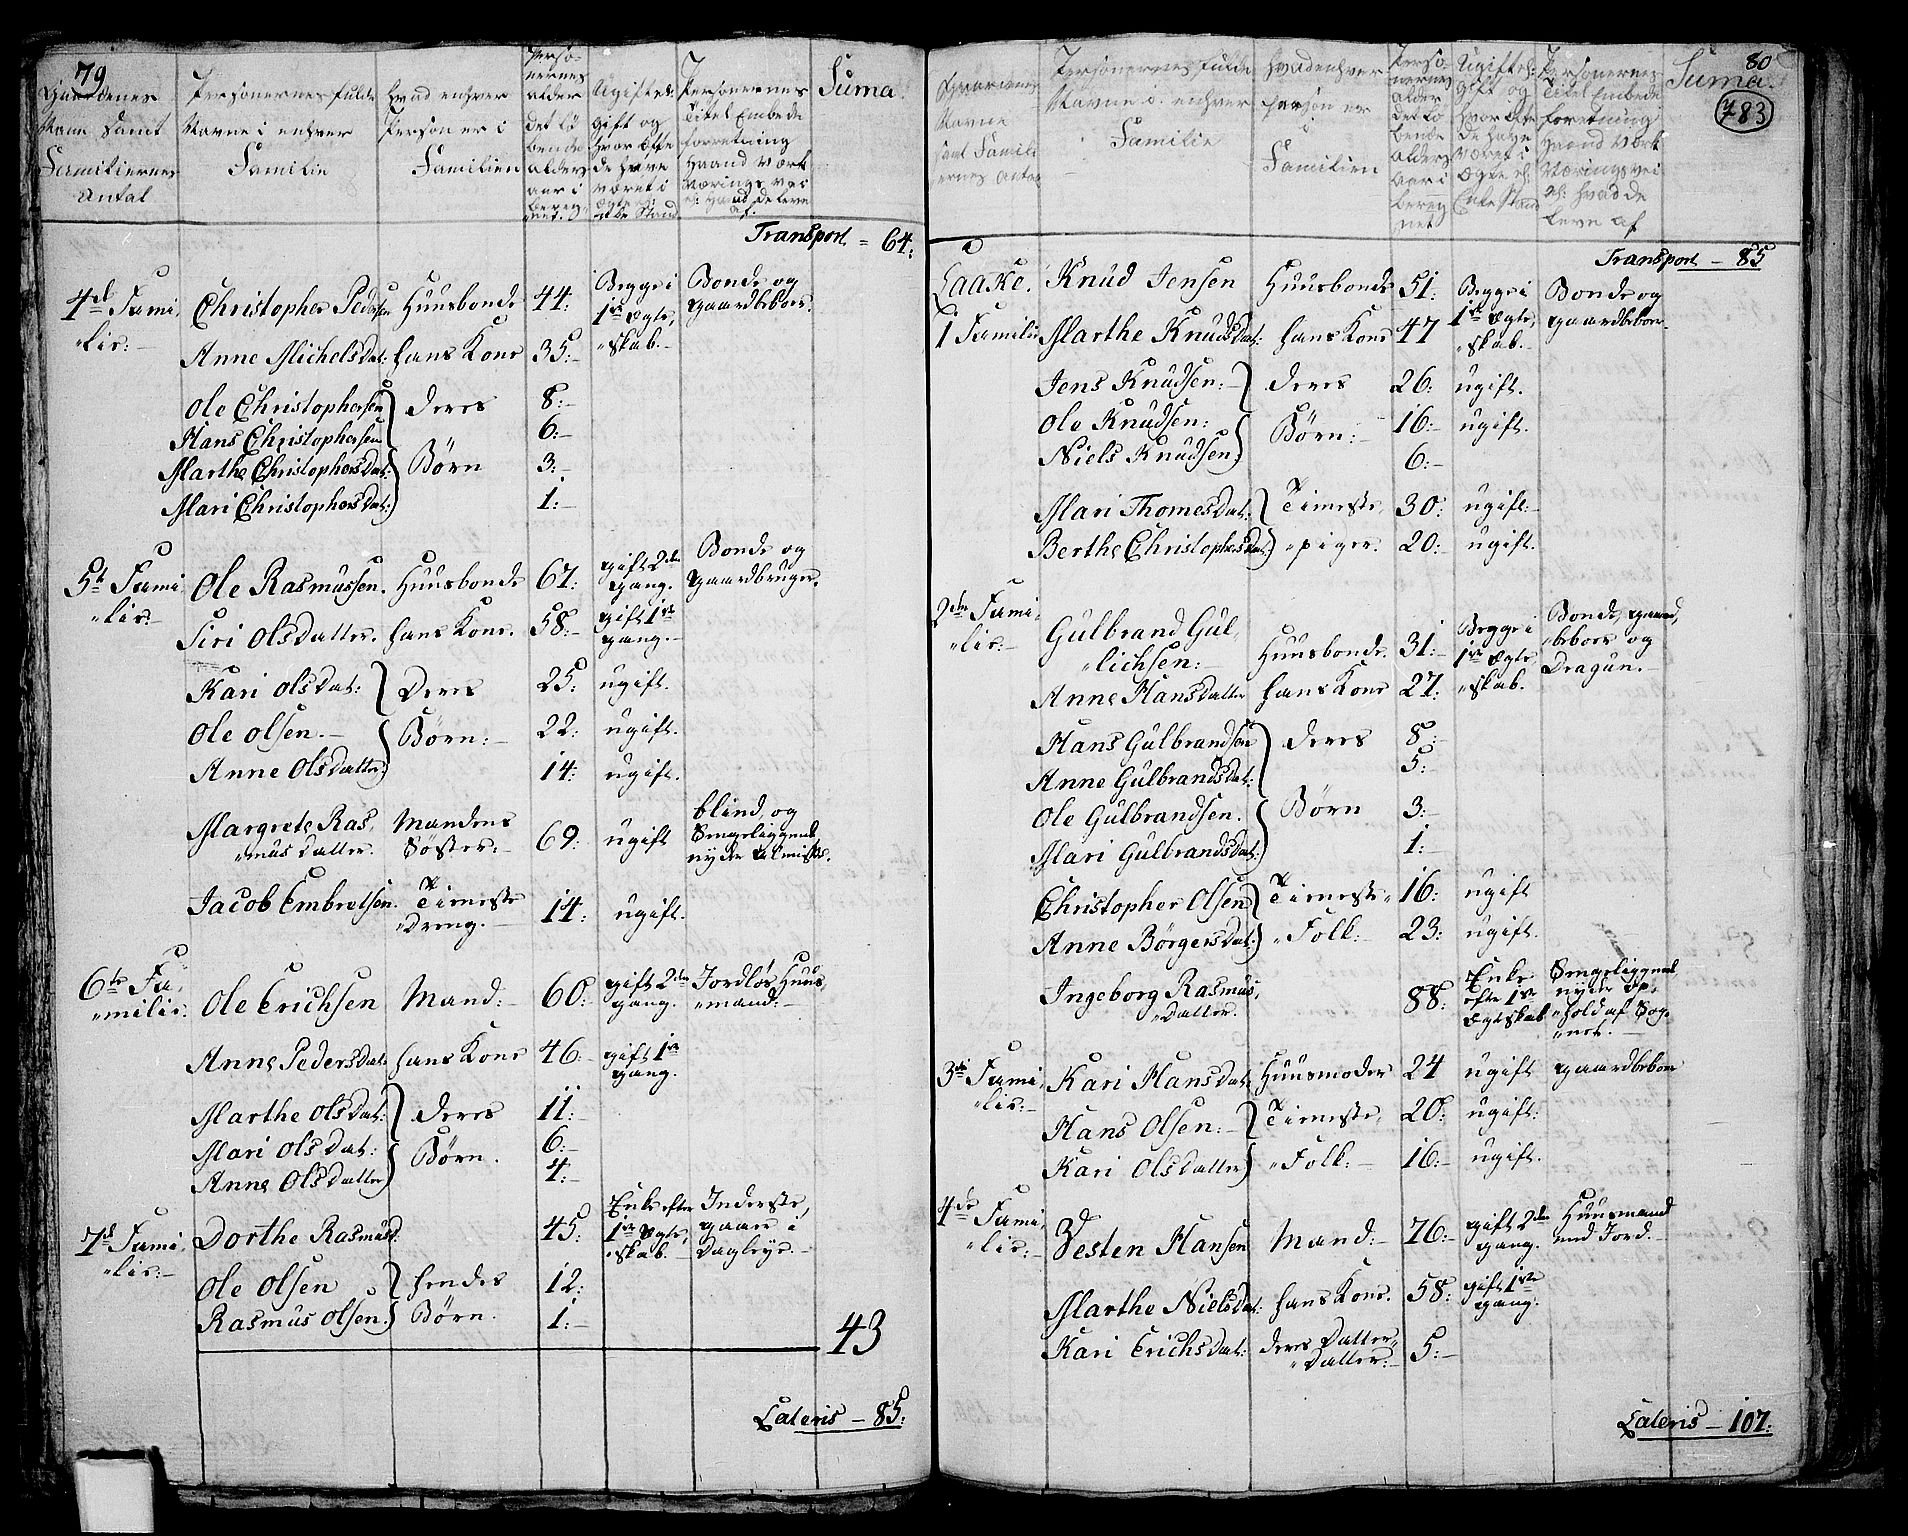 79
Gaardenes
Navne samt
Familiernes
Antal
Personernes fulde
Navne i enhver
Familie
hvad enhver
Person er i
Familien
Perso-
nernes
alder
det lø
bende
alders
aar i
bereg-
net.
Ugift el:
gift og
hvor ofte
de have
været i
Personernes
Titel Embede
forretning
Haand værk
Nærings vei
Suma.
Transport = 64:
4de Fami,
"lie:-
Christopher Pedersen Huusbonde 44:
Begge i
1ste Ægte,
"skab.-
Bonde og
gaardbeboer.
Anne Michelsdat: hans Kone 35:-
Ole Christophersen 8:-
Hans Christophersen 6:-
Marthe Christophersdat: 3:-
Mari Christophersdat: 1:-
deres
Børn
5te Fami
"lie:-
Ole Rasmussen. Huusbonde 67:
gift 2den
gang.
Bonde og
gaardbruger.
Siri Olsdatter. hans Kone. 58:-
gift 1ste
gang.-
Kari Olsdat: Deres 25: ugift.
Ole Olsen.- Børn:- 22: ugift.
Anne Olsdatter: 14: ugift.
Margrete Ras,
"mus datter.
Mandens
Søster:-
69: ugift
blind, og
Sengeliggende
nyder Almisse.
Jacob Embretsen. Tieneste
"Dreng.-
14: ugift.
6te Fa,
"milie.
Ole Erichsen Mand:- 60:
gift 2den
gang.
Jordløs Huus,
"mand:-
Anne Pedersdat: hans Kone 46:-
gift 1ste
gang.
Marthe Olsdat: deres 11:-
Mari Olsdat: Børn. 6:-
Anne Olsdatter 4:-
7de Fami,
"lie:-
Dorthe Rasmusd. 45:
Enke efter
1ste Ægte,
"skab.-
Inderste,
gaaer i
Dagleye.-
Ole Olsen hendes 12:
Rasmus Olsen. Børn. 1:-
43
Lateris - 85:
80
783
Gaardenes
Navne
samt Famili
ernes Antal
Personernes fulde
Navne i enhver
Familie
hvad enhver
person er
i
Familien
Perso-
nernes
alder
det lø
bende
alders
aar i
bereg
net
Ugift el:
gift og
hvor ofte
de have
været i
Ægte el:
Enke Stand
Personernes
Titel Embede
forretning
Haand værk
Næringsvei
el: hvad de
leve af
Suma.
Transport - 85
Laake.
1 Familie
Knud Jensen Huusbonde 51:
Begge i
1ste Ægte,
"skab.-
Bonde og
gaardbeboer
Marthe Knudsdat: hans Kone 47
Jens Knudsen:- deres 26: ugift.
Ole Knudsen: Børn:- 16:- ugift.
Niels Knudsen 6:-
Mari Thomesdat: Tieneste, 30: ugift:-
Berthe Christophersdat: "piger. 20:- ugift.
2den Fami,
"lie:-
Gulbrand Gul,
"lichsen:-
Huusbonde. 31:-
Begge i
1ste Ægte,
"skab.
Bonde, gaard,
"beboer og
Dragun.-
Anne Hansdatter hans Kone 27:
Hans Gulbrandsen deres 8:-
Anne Gulbrandsdat: 5:-
Ole Gulbrandsen. Børn 3:-
Mari Gulbrandsdat: 1:-
Christopher Olsen Tieneste" 16: ugift
Anne Børgersdat: "Folk:- 23: ugift.
Ingeborg Rasmus,
"Datter.
88:
Enke
efte 1ste
Ægteskab
Sengeliggende
nyder Op,
"hold af Sog,
"net.-
3de Fami,
"lie:-
Kari Hansdat: Huusmoder 24 ugift gaardbeboer
Hans Olsen:- Tieneste, 20: ugift:
Kari Olsdatter "Folk:- 16:- ugift.
4de Fami,
"lie:-
Vesten Hansen Mand:- 76:-
gift 2den
gang.
Huusmand
med Jord.-
Marthe Nielsdat: hans Kone. 58:
gift 1ste
gang.
Kari Erichsdat: deres Datter"
"Datter:-
5:-
Lateris - 107: